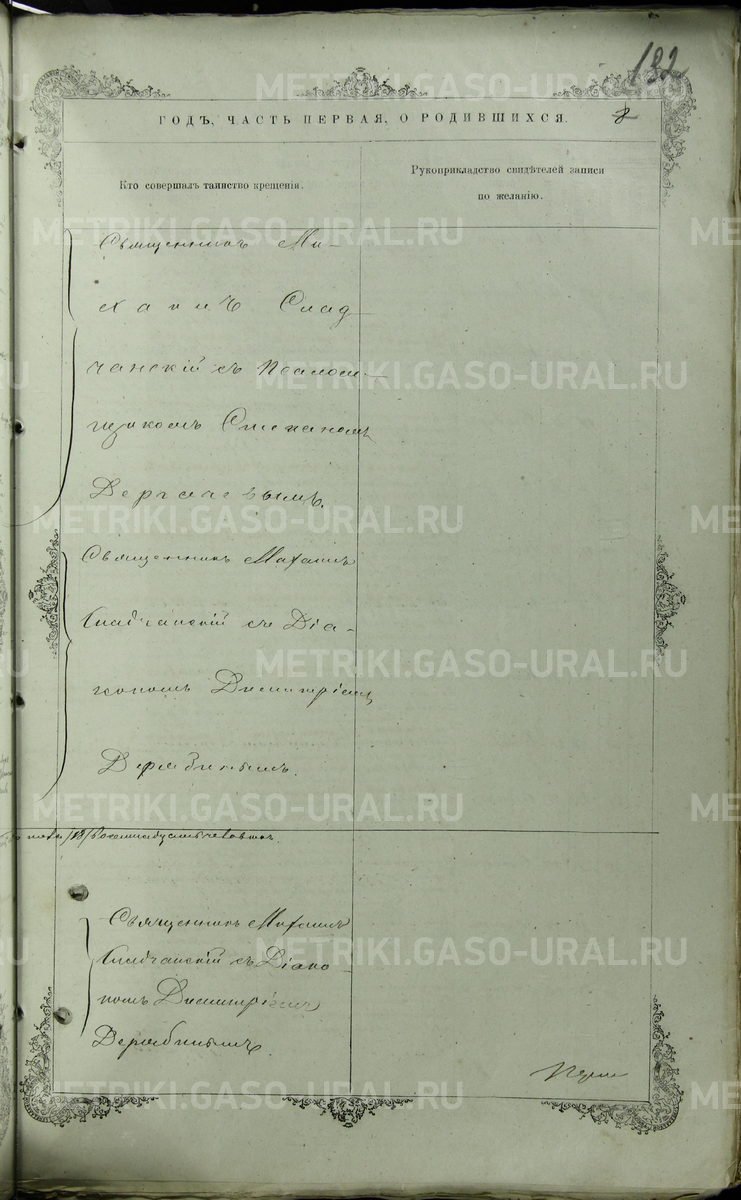 182
ГОДЪ, ЧАСТЬ ПЕРВАЯ, О РОДИВШИХСЯ.
Кто совершалъ таинство крещенія.
Рукоприкладство свидѣтелей записи
по желанію.
Священникъ Ми-
хаилъ Слад-
чанскій съ Псаломщ-
щикомъ Степаномъ
Священникъ Михаилъ
Сладчанскій съ Діа-
кономъ Димитріемъ
Дерябинымъ.
Священникъ Михаилъ
Сладчанскій съ Діако-
номъ Димитріемъ
Дерябинымъ.
METRIKI.GASO-URAL.RU